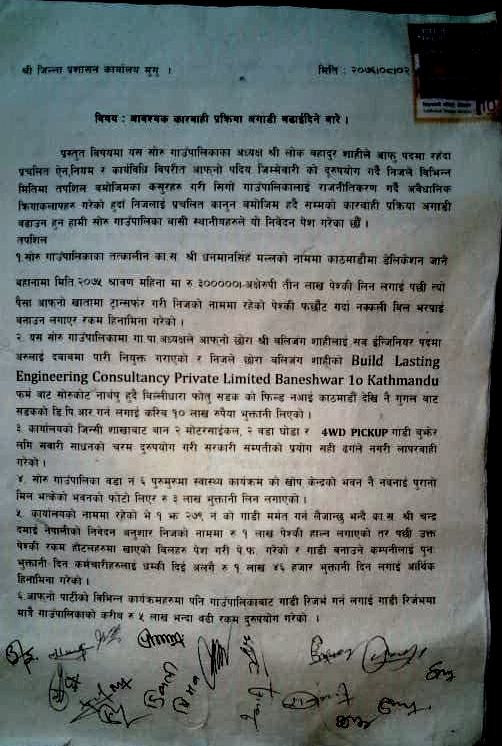 श्री जिल्ला प्रशासन कार्यालय मुगु ।
मिति : २०७६।०८।०२
विषय : आवश्यक कारबाही प्रक्रिया अगाडी बढाईदिने बारे ।
प्रस्तुत विषयमा यस सोरु गाउँपालिकाका अध्यक्ष श्री लोक बहादुर शाहीले आफु पदमा रहंदा
प्रचलित ऐन,नियम र कार्यविधि विपरीत आफ्नो पदिय जिम्मेवारी को दुरुपयोग गर्दै निजले विभिन्न
मितिमा तपशिल बमोजिमका कसुरहरु गरी सिंगो गाउँपालिकालाई राजनीतिकरण गर्दै अवैधानिक
क्रियाकलापहरु गरेको हुदां निजलाई प्रचलित कानुन बमोजिम हदै सम्मको कारबाही प्रक्रिया अगाडी
बढाउन हुन हामी सोरु गाउँपालिका बासी स्थानीयहरुले यो निवेदन पेश गरेका छौं ।
तपशिल
१.सोरु गाउँपालिकाका तत्कालीन का.स. श्री धनमानसिंह मल्लको नाममा काठमाडौंमा डेलिकेशन जाने
बहानामा मिति २०७५ श्रावण महिना मा रु ३०००००।-अक्षेरुपी तीन लाख पेश्की लिन लगाई पछी त्यो
पैसा आफ्नो खातामा ट्रान्सफर गरी निजको नाममा रहेको पेश्की फर्छौट गर्दा नक्कली बिल भरपाई
बनाउन लगाएर रकम हिनामिना गरेको ।
२. यस सोरु गाउँपालिकामा गा.पा.अध्यक्षले आफनो छोरा श्री बलिजंग शाहीलाई सब ईन्जिनियर पदमा
अरुलाई दबाबमा पारी नियुक्त गराएको र निजले छोरा बलिजंग शाहीको Build Lasting
Engineering Consultancy Private Limited Baneshwar 1o Kathmandu
फर्म बाट सोरुकोट नार्थपु हुदै धिल्लीधारा फोतु सडक को फिल्ड नआई काठमाडौं देखि नै गुगल बाट
सडकको डि.पि.आर गर्न लगाई करिब १० लाख रुपैया भुक्तानी लिएको ।
३. कार्यालयको जिन्सी शाखाबाट थान २ मोटरसाईकल, २ वडा घोडा र 4WD PICKUP गाडी बुझेर
लगि सबारी साधनको चरम दुरुपयोग गरी सरकारी सम्पतीको प्रयोग सही ढंगले नगरी लापरबाही
गरेको ।
४. सोरु गाउँपालिका वडा नं ६ पुरुमुरुमा स्वास्थ्य कार्यक्रम को खोप केन्द्रको भवन नै नबनाई पुरानो
मिल भत्केको भवनको फोटो लिएर रु ३ लाख भुक्तानी लिन लगाएको ।
५. कार्यालयको नाममा रहेको भे १ झ २७९ नं को गाडी मर्मत गर्न लैजान्छु भन्दै का.स. श्री चन्द्र
दमाई नेपालीको निवेदन अनुशार निजको नाममा रु १ लाख पेश्की हाल्न लगाएको तर पछी उक्त
पेश्की रकम होटलहरुमा खाएको बिलहरु पेश गरी पे.फ. गरेको र गाडी बनाउने कम्पनीलाई पुनः
भुक्तानी दिन कर्मचारीहरुलाई धम्की दिई अलगै रु १ लाख ४६ हजार भुक्तानी दिन लगाई आर्थिक
हिनामिना गरेको ।
६.आफ्नो पार्टीको बिभिन्न कार्यक्रमहरुमा पनि गाउँपालिकाबाट गाडी रिजर्भ गर्न लगाई गाडी रिजर्भमा
मात्रै गाउँपालिकाको करीब रु ५ लाख भन्दा बढी रकम दुरुपयोग गरेको ।